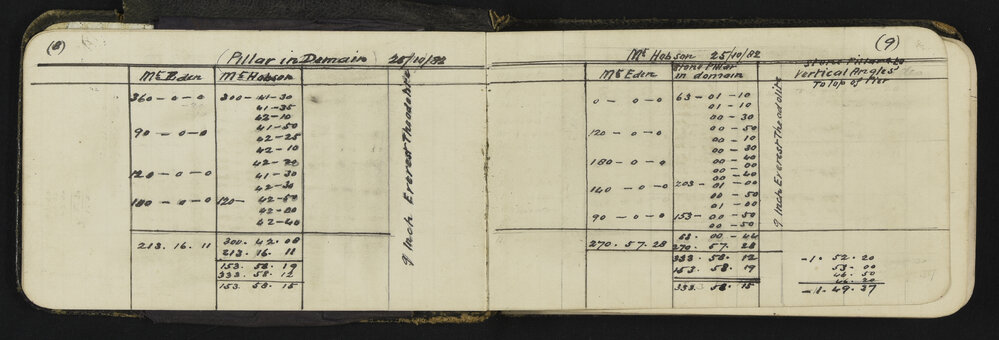 (8)
(Pillar in Domain) 25/10/82
Mt Eden Mt Hobson
360 - 0 - 0 300 - 41 - 30
41 - 35
42 - 10
90 - 0 - 0 41 - 50
42 - 25
42 - 10
42 - 20
120 - 0 - 0 41 - 30
42 - 30
180 - 0 - 0 120 - 42 - 50
42 - 20
42 - 40
213 . 16 . 11 300 . 42 . 08
213 . 16 . 11
153 . 58 . 19
333 . 58 . 12
153 . 58 . 15
9 Inch Everest Theodolite
(9)
Mt Hobson 25/10/82
Mt Eden Stone Pillar in domain
0 - 0 - 0 63 - 01 - 10
01 - 10
00 - 30
00 - 50
120 - 0 - 0 00 - 10
00 - 30
00 - 40
180 - 0 - 0 00 - 00
00 - 40
140 - 0 - 0 203 - 01 - 00
00 - 50
01 - 00
90 - 0 - 0 153 - 00 - 50
00 - 50
00 - 44
270 . 57 . 28 270 . 57 . 28
333 . 58 . 12
153 . 58 . 19
333 . 58 . 15
9 Inch Everest Theodolite
Vertical Angles
To Top of Pier
-1 . 52 . 20
53 . 00
46 . 50
46 . 20
49 . 37